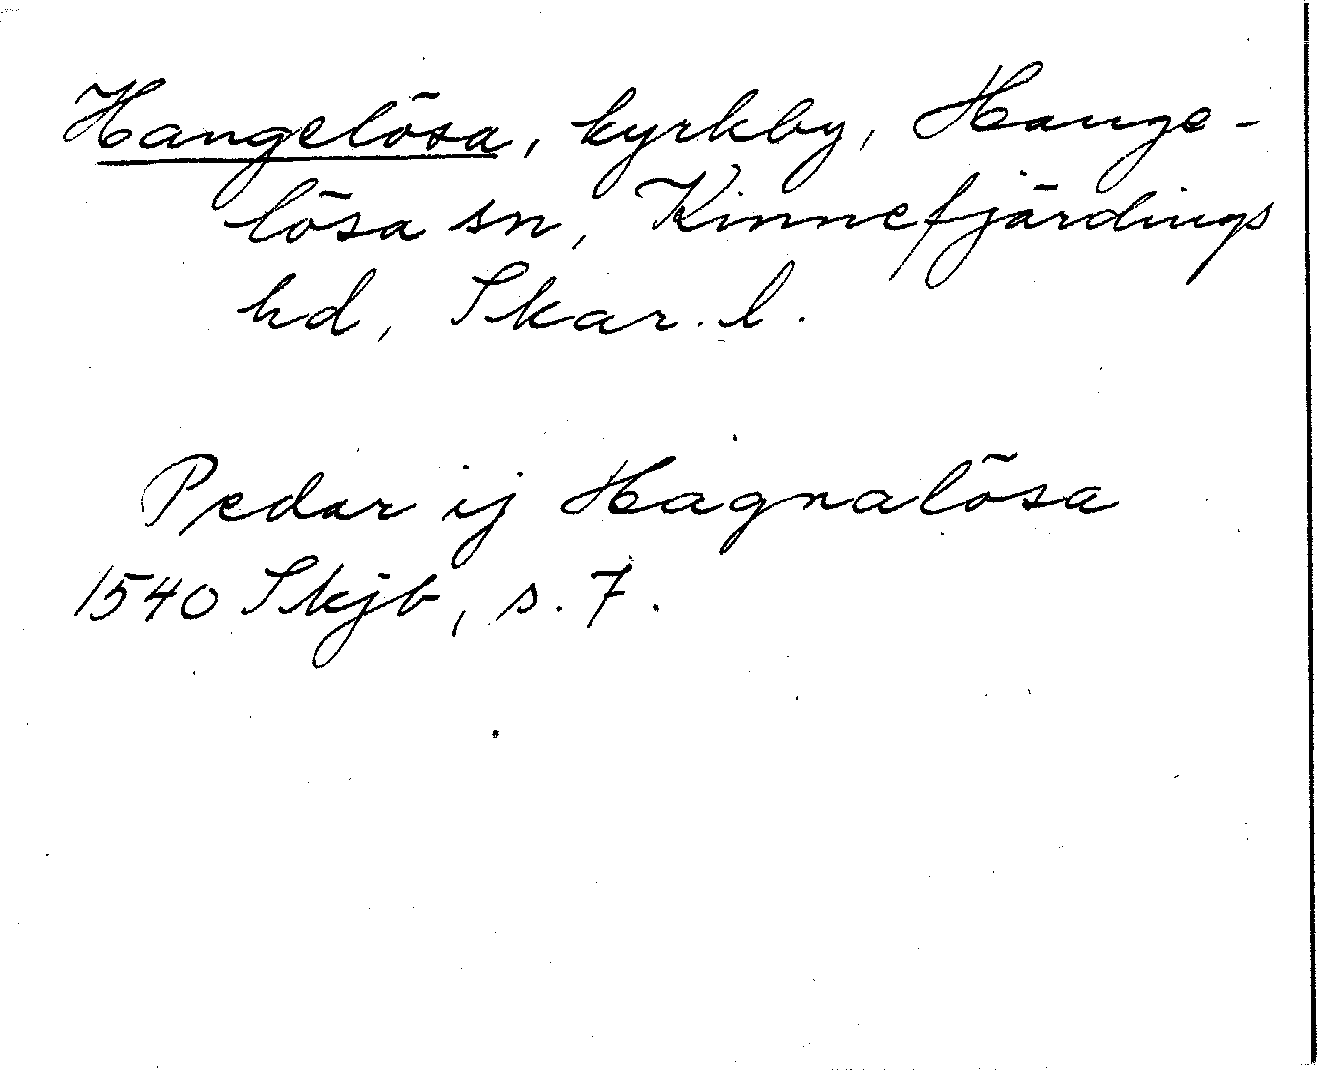 Hangelösa, kyrkby, Hange-
lösa sn, Kinnefjärdings
hd, Skar. l.
Pedar ij Hagnalösa
1540 Skjb, s. 7.